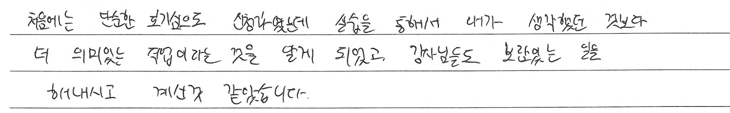 처음에는 단순한 호기심으로 신청하였는데 실습을 통해서 내가 생각했던 것보다
더 의미있는 직업이라는 것을 알게 되었고, 강사님들도 보람있는 일을
해내시고 계신것 같았습니다.